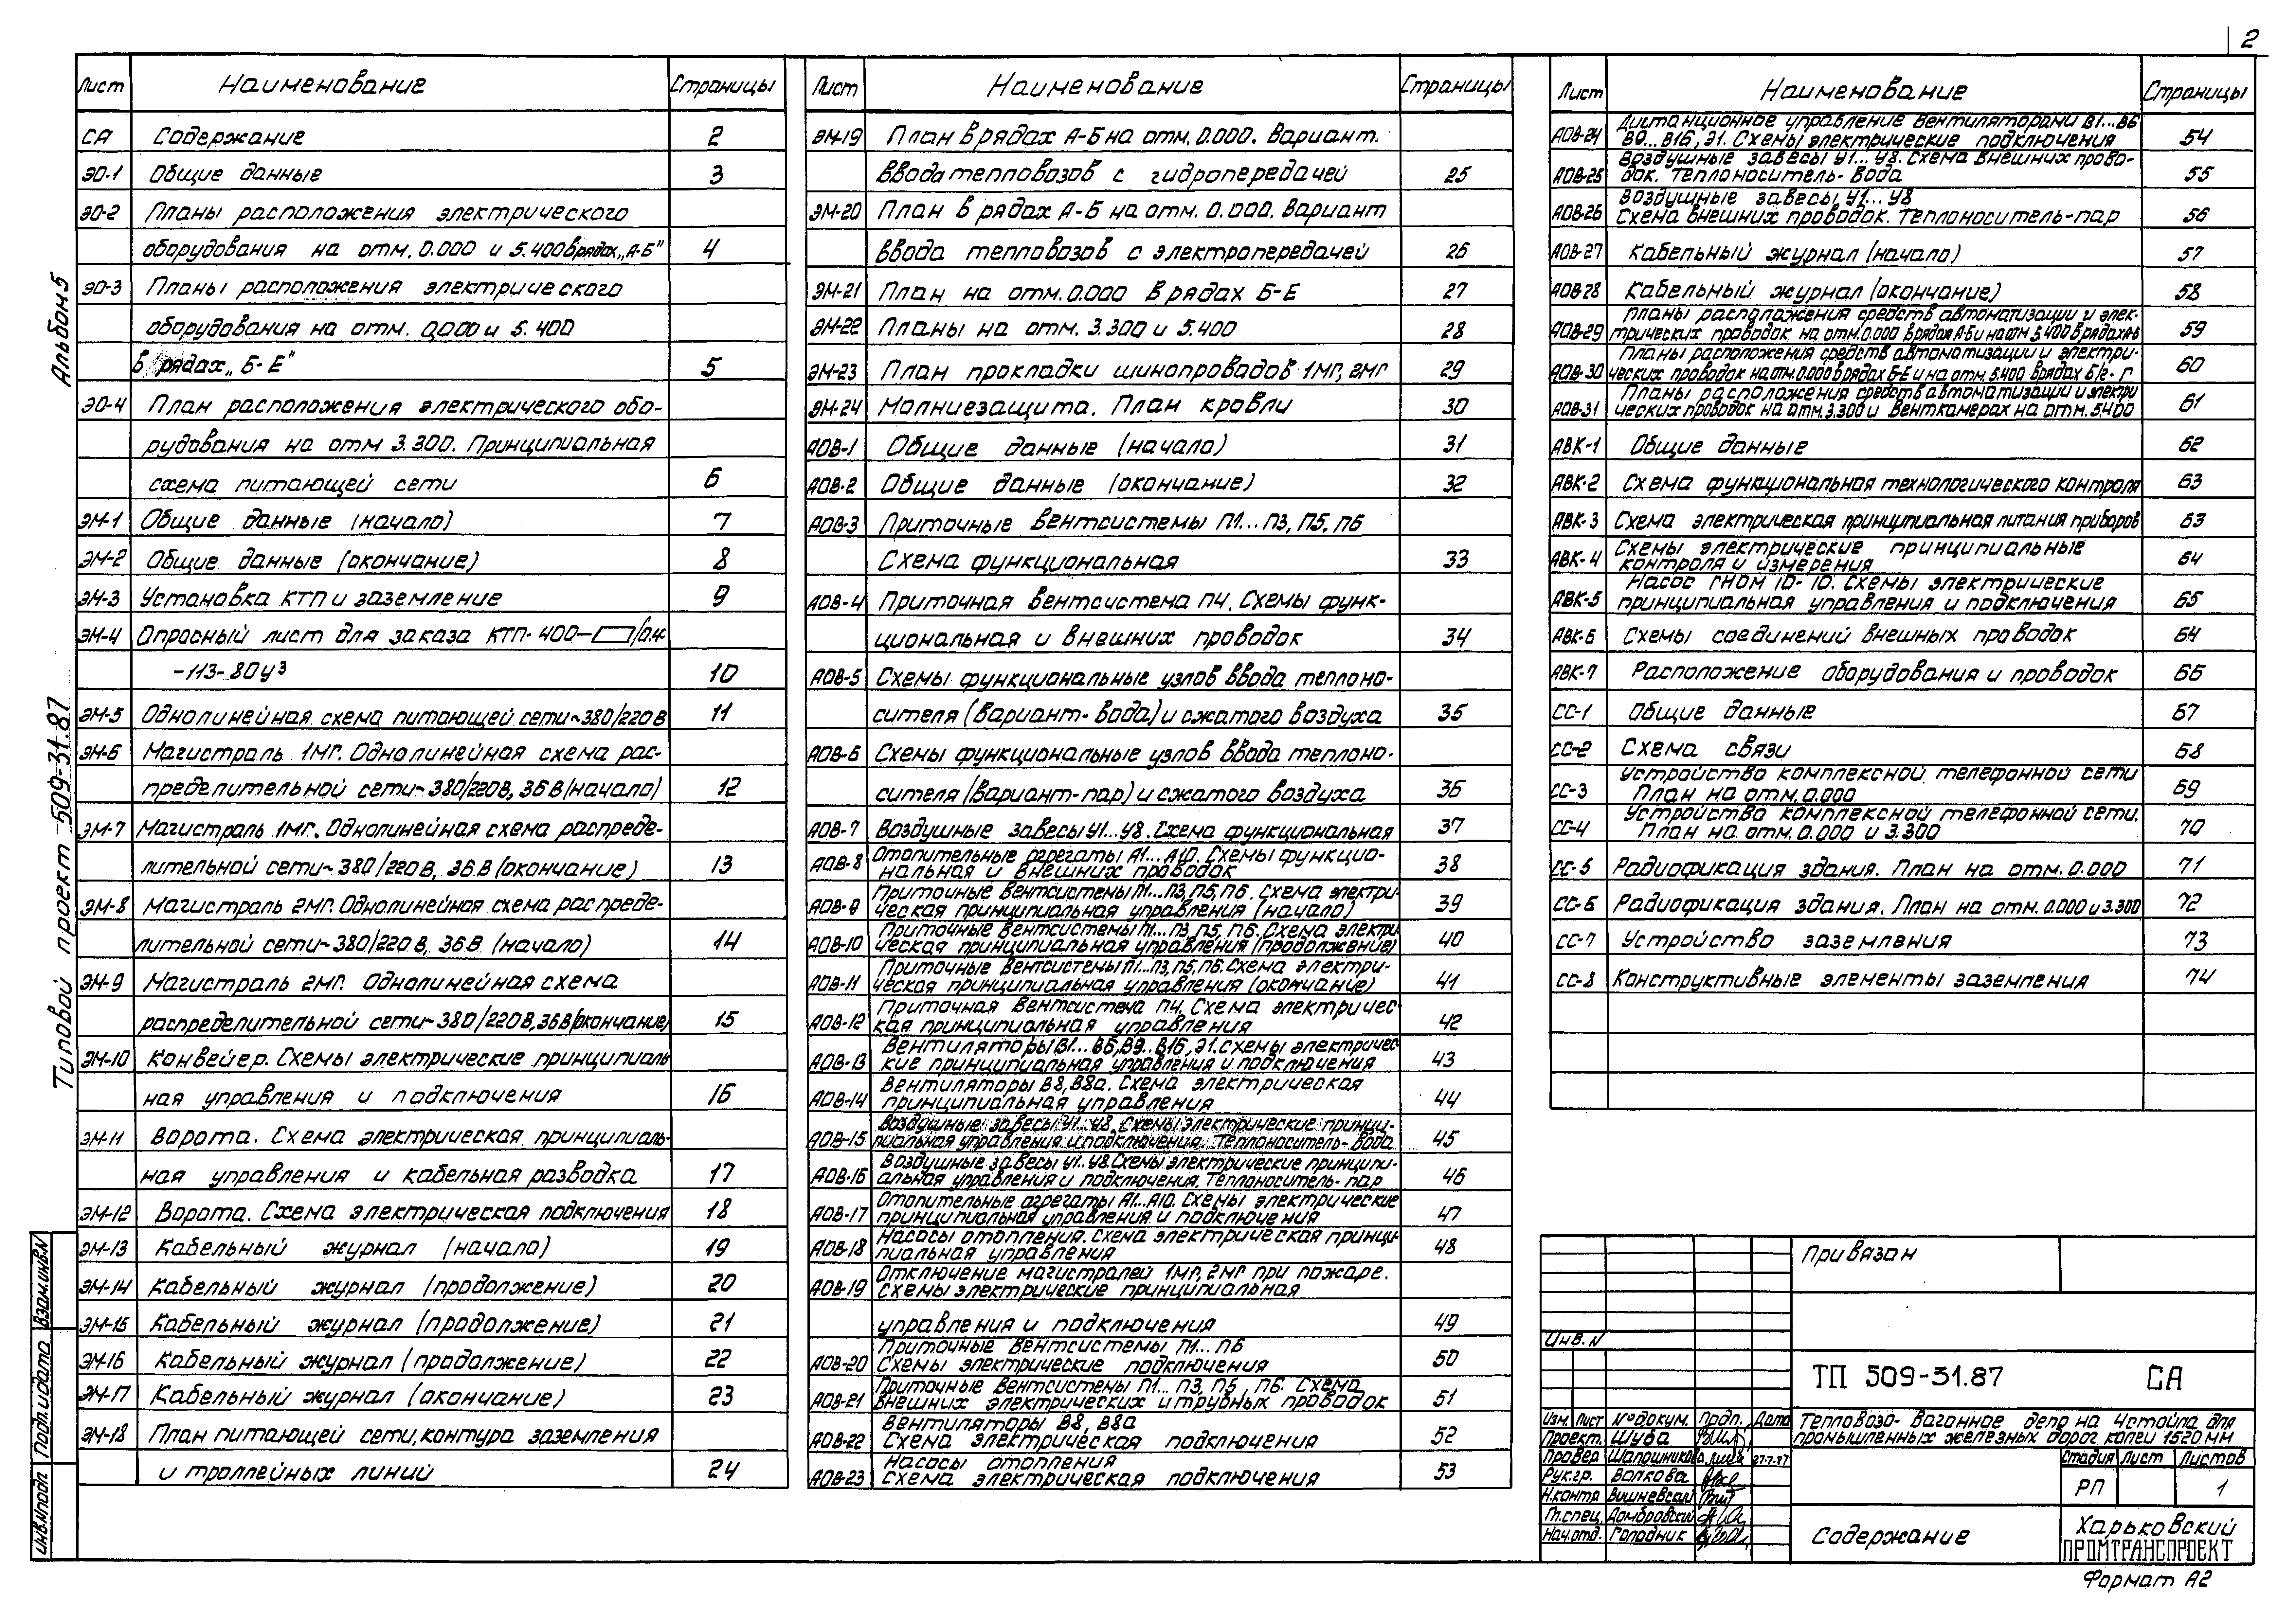 2
Лист Наименование Страницы
СА Содержание 2
ЭО-1 Общие данные 3
ЭО-2 Планы расположения электрического
оборудования на отм. 0.000 и 5.400 в рядах „А-Б"
4
ЭО-3 Планы расположения электрического
оборудования на отм. 0.000 и 5.400
в рядах „Б-Е" 5
ЭО-4 План расположения электрического обо-
рудования на отм 3.300. Принципиальная
схема питающей сети 6
ЭМ-1 Общие данные (начало) 7
ЭМ-2 Общие данные (окончание) 8
ЭМ-3 Установка КТП и заземление 9
ЭМ-4 Опросный лист для заказа КТП-400-▭/0.4
-113-80У3 10
ЭМ-5 Однолинейная схема питающей сети ~380/220В 11
ЭМ-6 Магистраль 1МГ. Однолинейная схема рас-
пределительной сети ~380/220В, 36В (начало) 12
ЭМ-7 Магистраль 1МГ. Однолинейная схема распреде-
лительной сети ~380/220В, 36В (окончание) 13
ЭМ-8 Магистраль 2МГ. Однолинейная схема распреде-
лительной сети ~380/220В, 36В (начало) 14
ЭМ-9 Магистраль 2МГ. Однолинейная схема
распределительной сети ~380/220В, 36В (окончание) 15
ЭМ-10 Конвейер. Схемы электрические принципиаль
ная управления и подключения 16
ЭМ-11 Ворота. Схема электрическая принципиаль-
ная управления и кабельная разводка 17
ЭМ-12 Ворота. Схема электрическая подключения 18
ЭМ-13 Кабельный журнал (начало) 19
ЭМ-14 Кабельный журнал (продолжение) 20
ЭМ-15 Кабельный журнал (продолжение) 21
ЭМ-16 Кабельный журнал (продолжение) 22
ЭМ-17 Кабельный журнал (окончание) 23
ЭМ-18 План питающей сети, контура заземления
и троллейных линий 24
Лист Наименование Страницы
ЭМ-19 План в рядах А-Б на отм. 0.000. Вариант
ввода тепловозов с гидропередачей 25
ЭМ-20 План в рядах А-Б на отм. 0.000. Вариант
ввода тепловозов с электропередачей 26
ЭМ-21 План на отм. 0.000 в рядах Б-Е 27
ЭМ-22 Планы на отм. 3.300 и 5.400 28
ЭМ-23 План прокладки шинопроводов 1МГ, 2МГ 29
ЭМ-24 Молниезащита. План кровли 30
АОВ-1 Общие данные (начало) 31
АОВ-2 Общие данные (окончание) 32
АОВ-3 Приточные вентсистемы П1...П3, П5, П6
Схема функциональная 33
АОВ-4 Приточная вентсистема П4. Схемы функ-
циональная и внешних проводок 34
АОВ-5 Схемы функциональные узлов ввода теплоно-
сителя (вариант-вода) и сжатого воздуха 35
АОВ-6 Схемы функциональные узлов ввода теплоно-
сителя (вариант-пар) и сжатого воздуха 36
АОВ-7 Воздушные завесы У1...У8. Схема функциональная 37
АОВ-8 Отопительные агрегаты А1...А10. Схемы функцио-
нальная и внешних проводок 38
АОВ-9 Приточные вентсистемы П1...П3, П5, П6. Схема электри-
ческая принципиальная управления (начало) 39
АОВ-10 Приточные вентсистемы П1...П3, П5, П6. Схема электри
ческая принципиальная управления (продолжение) 40
АОВ-11 Приточные вентсистемы П1...П3, П5, П6. Схема электри-
ческая принципиальная управления (окончание) 41
АОВ-12 Приточная вентсистема П4. Схема электричес-
кая принципиальная управления 42
АОВ-13 Вентиляторы В1...В6, В9...В16, Э1. Схемы электричес
кие принципиальная управления и подключения 43
АОВ-14 Вентиляторы В8, В8а. Схема электрическая
принципиальная управления 44
АОВ-15 Воздушные завесы У1...У8. Схемы электрические принци-
пиальная управления и подключения. Теплоноситель-вода 45
АОВ-16 Воздушные завесы У1...У8. Схемы электрические принципи-
альная управления и подключения. Теплоноситель-пар 46
АОВ-17 Отопительные агрегаты А1...А10. Схемы электрические
принципиальная управления и подключения 47
АОВ-18 Насосы отопления. Схема электрическая принци
пиальная управления 48
АОВ-19 Отключение магистралей 1МГ, 2МГ при пожаре.
Схемы электрические принципиальная
управления и подключения 49
АОВ-20 Приточные вентсистемы П1...П6
Схемы электрические подключения 50
АОВ-21 Приточные вентсистемы П1...П3, П5, П6. Схема
внешних электрических и трубных проводок 51
АОВ-22 Вентиляторы В8, В8а
Схема электрическая подключения 52
АОВ-23 Насосы отопления
Схема электрическая подключения 53
Лист Наименование Страницы
АОВ-24 Дистанционное управление вентиляторами В1...В6
В9...В16, Э1. Схемы электрические подключения 54
АОВ-25 Воздушные завесы У1...У8. Схема внешних прово-
док. Теплоноситель-вода 55
АОВ-26 Воздушные завесы У1...У8
Схема внешних проводок. Теплоноситель-пар 56
АОВ-27 Кабельный журнал (начало) 57
АОВ-28 Кабельный журнал (окончание) 58
АОВ-29 Планы расположения средств автоматизации и элек-
трических проводок на отм. 0.000 в рядах А-Б и на отм 5.400 в рядах А-Б 59
АОВ-30 Планы расположения средств автоматизации и электри-
ческих проводок на отм. 0.000 в рядах Б-Е и на отм. 5.400 в рядах Б/2-Г 60
АОВ-31 Планы расположения средств автоматизации и электри
ческих проводок на отм. 3.300 и венткамерах на отм. 5.400 61
АВК-1 Общие данные 62
АВК-2 Схема функциональная технологического контроля 63
АВК-3 Схема электрическая принципиальная питания приборов 63
АВК-4 Схемы электрические принципиальные
контроля и измерения 64
АВК-5 Насос ГНОМ 10-10. Схемы электрические
принципиальная управления и подключения 65
АВК-6 Схемы соединений внешных проводок 64
АВК-7 Расположение оборудования и проводок 66
СС-1 Общие данные 67
СС-2 Схема связи 68
СС-3 Устройство комплексной телефонной сети
План на отм. 0.000 69
СС-4 Устройство комплексной телефонной сети.
План на отм. 0.000 и 3.300 70
СС-5 Радиофикация здания. План на отм. 0.000 71
СС-6 Радиофикация здания. План на отм. 0.000 и 3.300 72
СС-7 Устройство заземления 73
СС-8 Конструктивные элементы заземления 74
Альбом 5
Типовой проект 509-31.87
Взам.инв.N
Подп. и дата
Инв.N подл
Привязан
Инв. N
ТП 509-31.87 СА
Изм. Лист N° докум. Подп. Дата
Проект. Шуба
Провер Шапошникова 27.7.87
Рук.гр. Волкова
Н.контр Вишневский
Гл.спец. Домбровский
Нач.отд. Голодник
Тепловозо-вагонное депо на 4 стойла для
промышленных железных дорог колеи 1520 мм
Стадия Лист Листов
РП 1
Содержание
Харьковский
ПРОМТРАНСПРОЕКТ
Формат А2